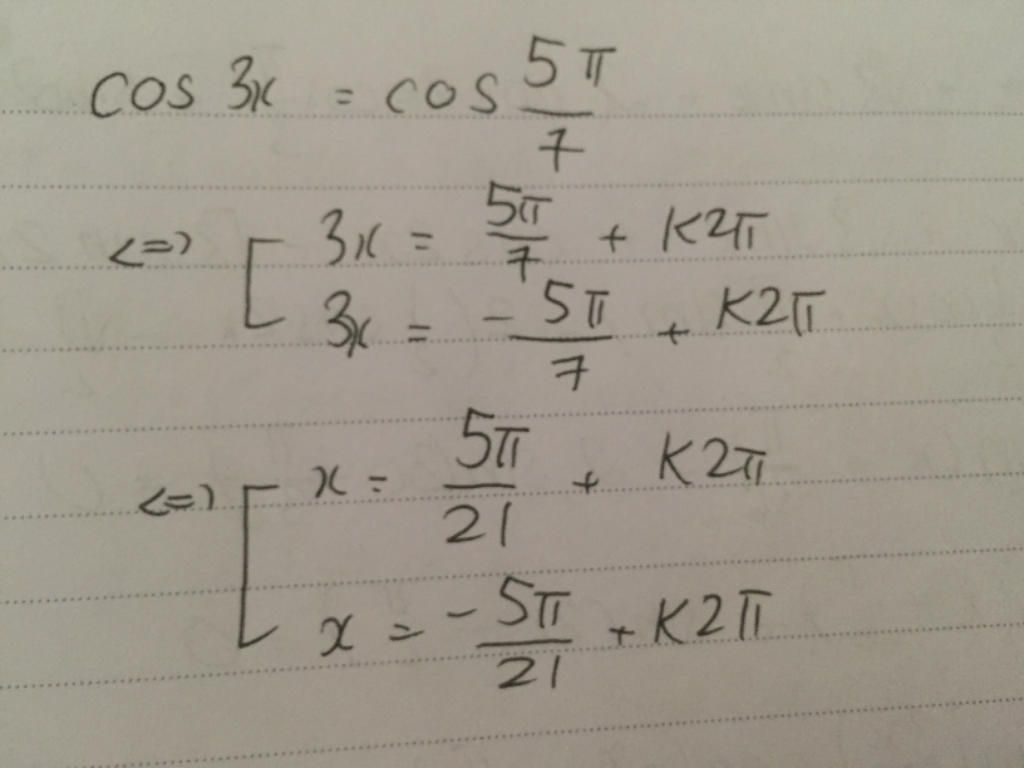 cos 3x = cos 5π/7
<=> [ 3x = 5π/7 + K2π
3x = -5π/7 + K2π
<=> [ x = 5π/21 + K2π
x = -5π/21 + K2π